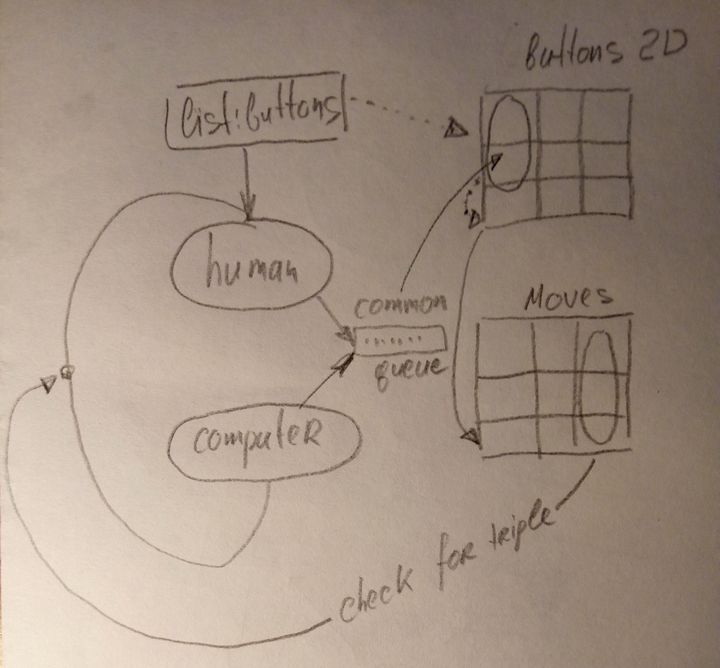 Buttons 2D
list:buttons
human
common
queue
Moves
computer
check for triple